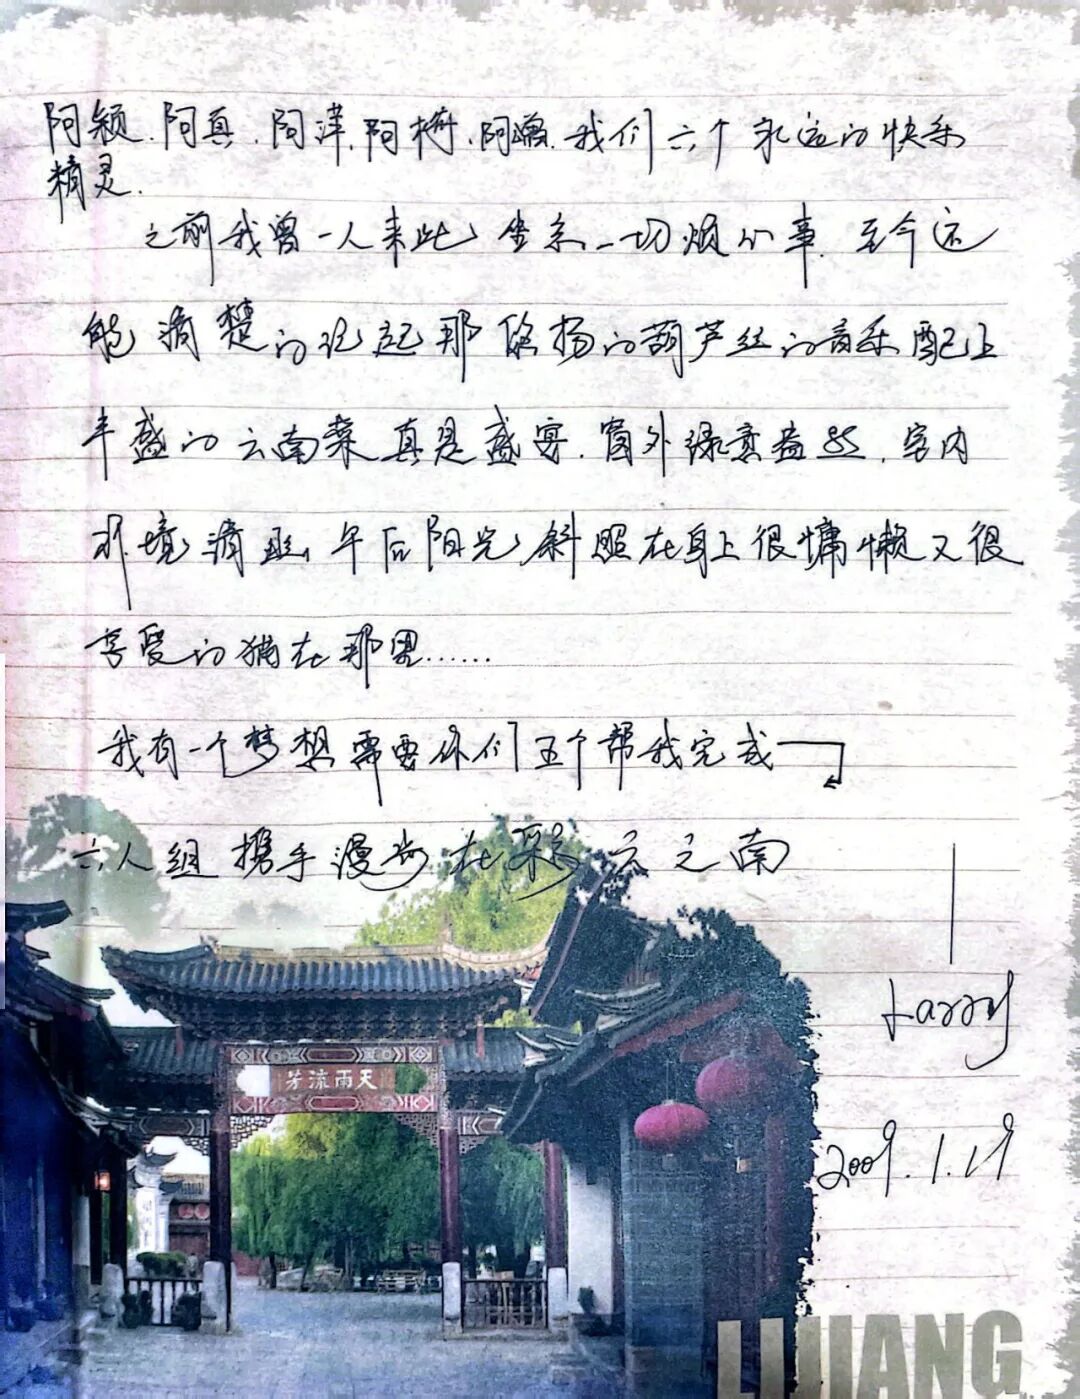 阿颖.阿真.阿洋.阿梅.阿 我们六个永远的快乐
精灵.
之前我曾一人来此 坐亲一切烦心事 至今还
能清楚的记起那悠扬的葫芦丝的音乐配上
丰盛的云南菜真是盛宴.窗外绿意盎然.室内
环境清 午后阳光斜照在身上很慵懒又很
享受的躺在那里......
我有一个梦想需要你们五个帮我完成
六人组携手漫步在彩云之南
Larry
2009.1.19
天雨流芳
LIJIANG